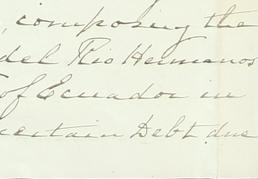 , composing the
del Rio Hermanos
of Ecuador in
certain Debt due